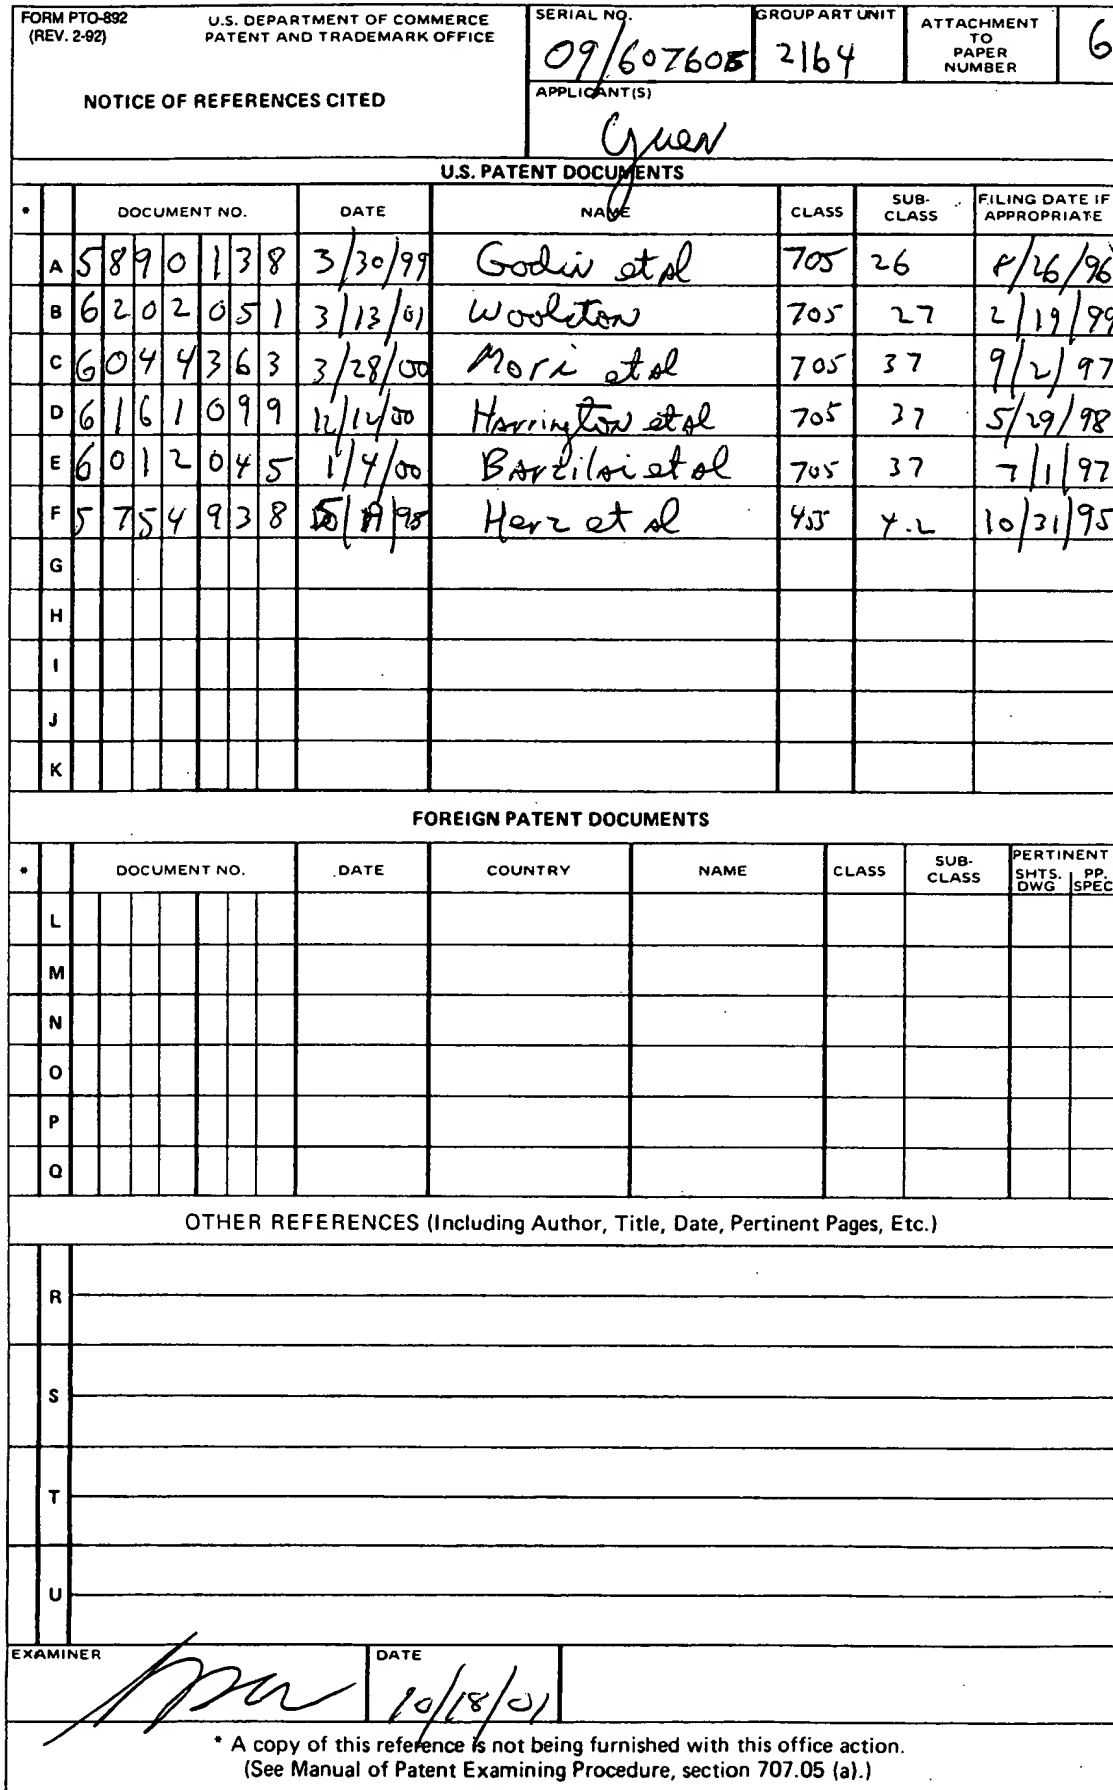 FORM PTO-892 U.S. DEPARTMENT OF COMMERCE
(REV. 2-92) PATENT AND TRADEMARK OFFICE
NOTICE OF REFERENCES CITED
SERIAL NO. GROUP ART UNIT ATTACHMENT TO PAPER NUMBER
09/607605 2164 6
APPLICANT(S)
U.S. PATENT DOCUMENTS
* DOCUMENT NO. DATE NAME CLASS SUB-CLASS FILING DATE IF APPROPRIATE
A 5890138 3/30/99 Godin et al 705 26 8/26/96
B 6202051 3/13/01 Woolston 705 27 2/19/99
C 6044363 3/28/00 Mori et al 705 37 9/2/97
D 6161099 12/12/00 Harrington et al 705 37 5/29/98
E 6012045 1/4/00 Barzilai et al 705 37 7/1/97
F 5754938 Herz et al 455 4.2 10/31/95
G
H
I
J
K
FOREIGN PATENT DOCUMENTS
* DOCUMENT NO. DATE COUNTRY NAME CLASS SUB-CLASS PERTINENT SHTS. DWG PP. SPEC
L
M
N
O
P
Q
OTHER REFERENCES (Including Author, Title, Date, Pertinent Pages, Etc.)
R
S
T
U
EXAMINER DATE
10/18/01
* A copy of this reference is not being furnished with this office action.
(See Manual of Patent Examining Procedure, section 707.05 (a).)